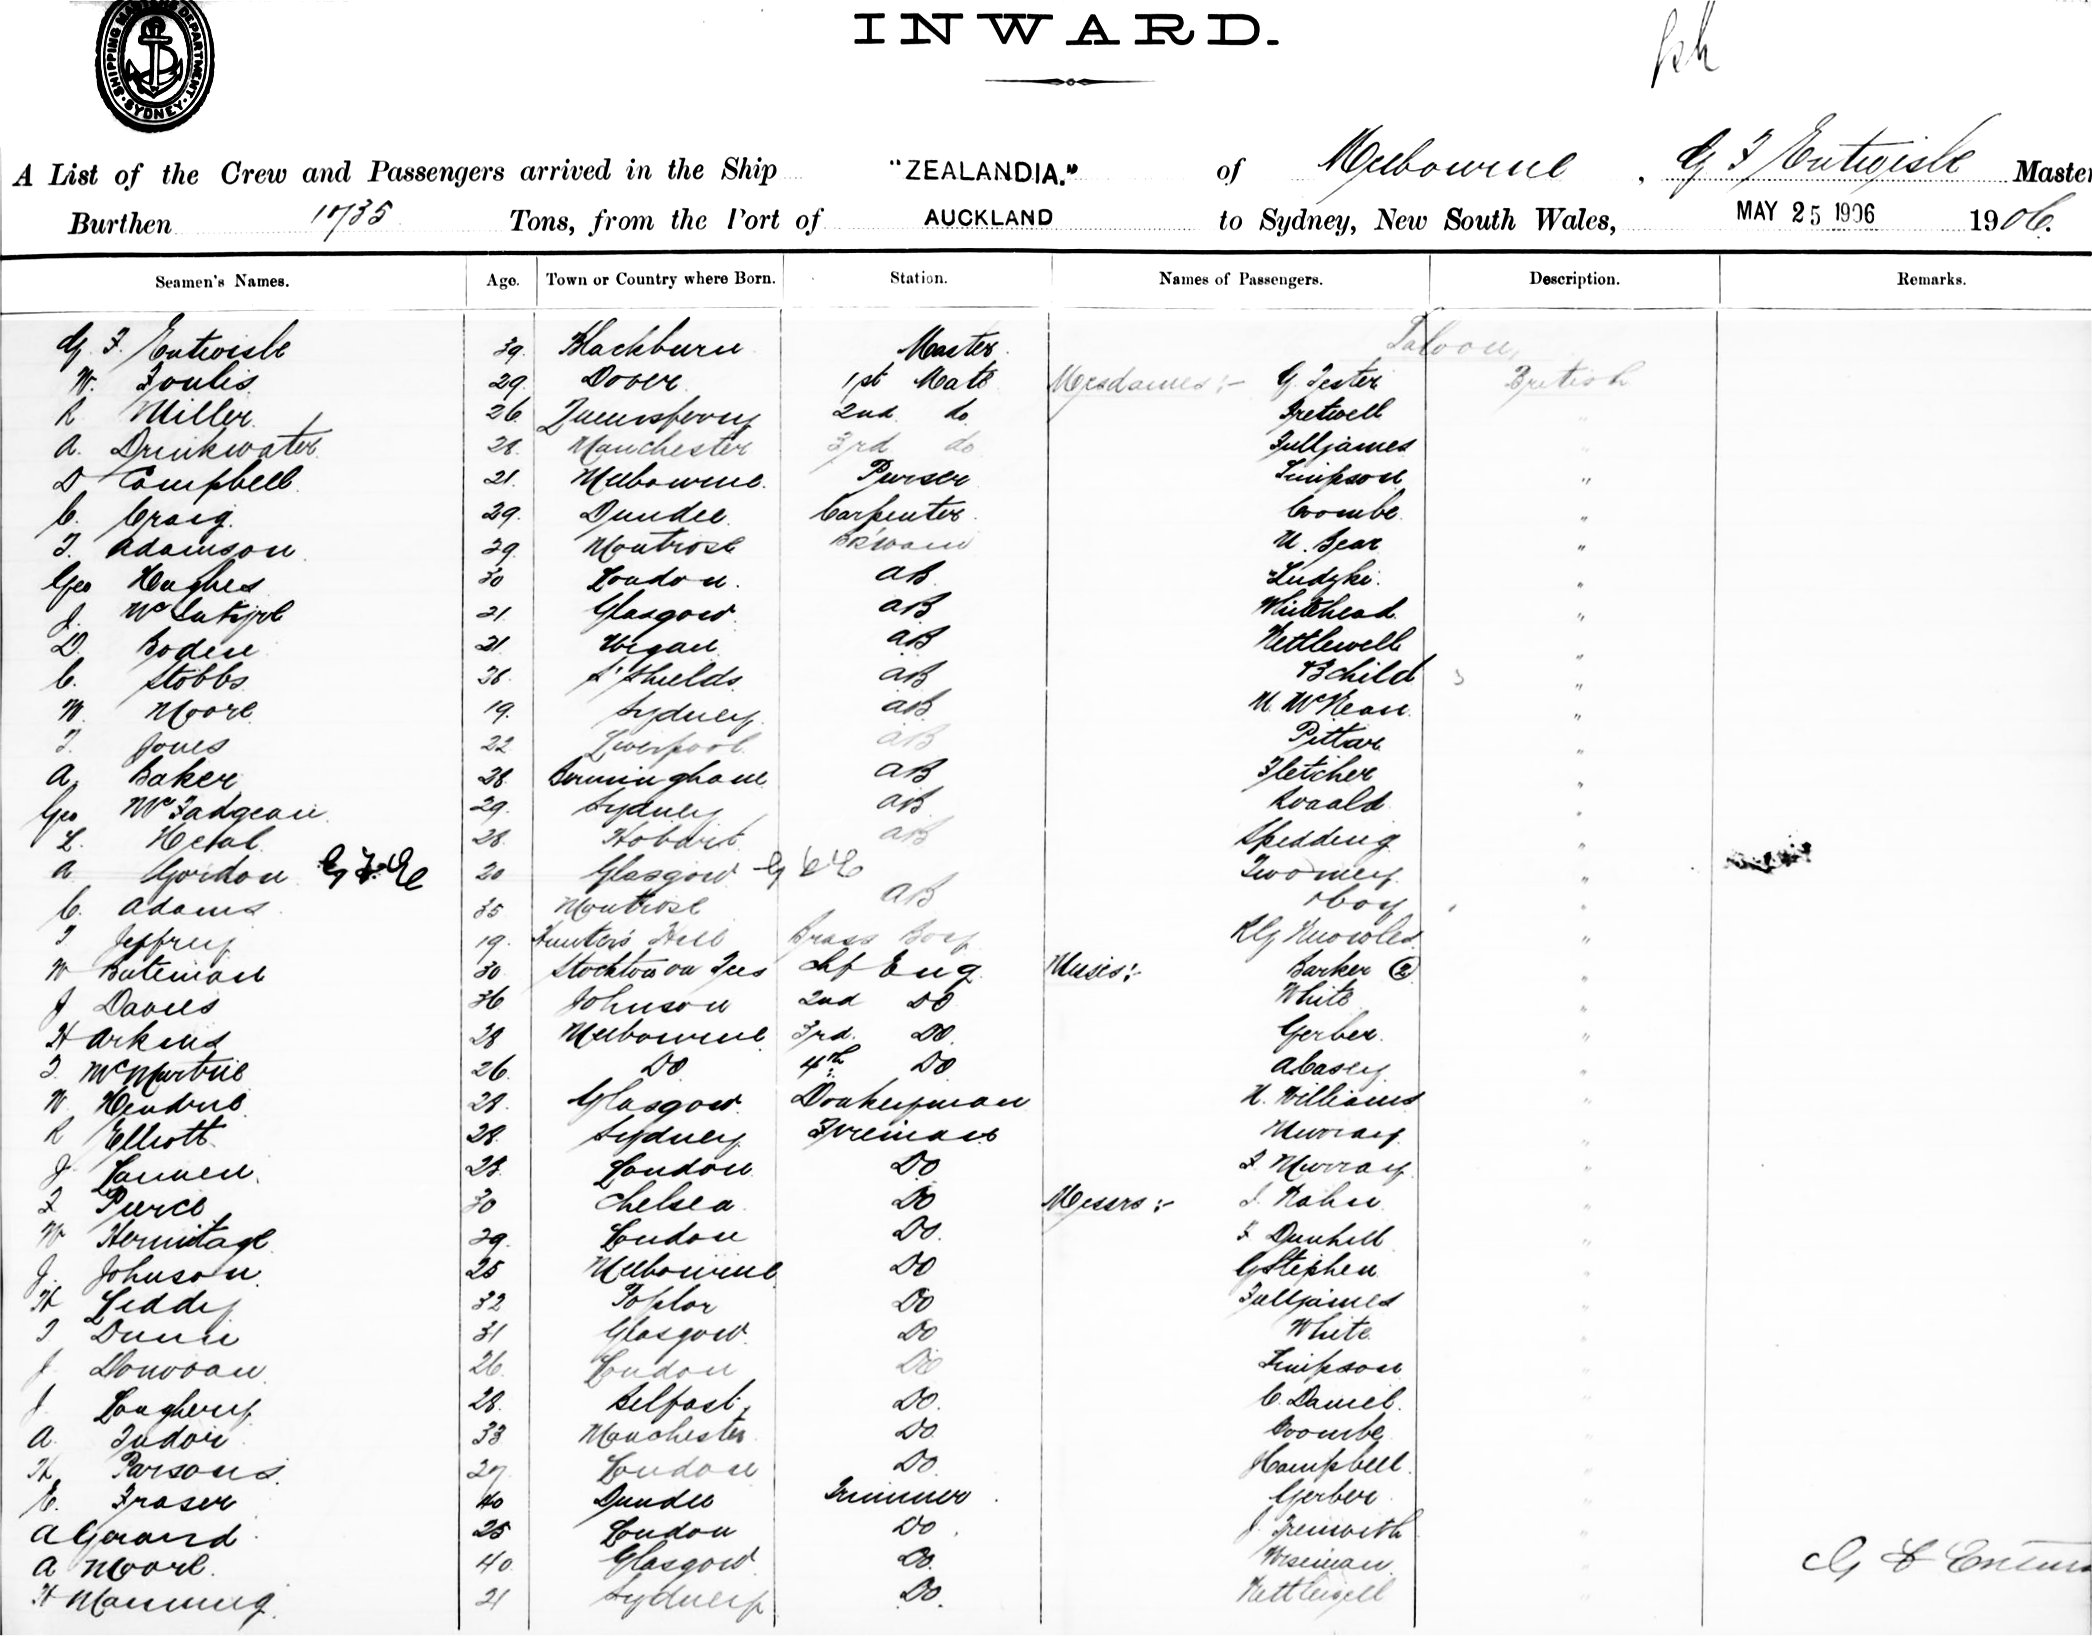 SHIPPING MASTER'S DEPARTMENT
SYDNEY
INWARD.
A List of the Crew and Passengers arrived in the Ship "ZEALANDIA." of Melbourne, G F Entwisle Master
Burthen Tons, from the Port of AUCKLAND to Sydney, New South Wales, MAY 25 1906 1906.
Seamen's Names. Age. Town or Country where Born. Station. Names of Passengers. Description. Remarks.
G. F. Entwisle 39. Blackburn Master. Saloon,
W. Foulis 29. Dover 1st Mate Mesdames:- G. Tester British
R Miller. 26 Queensferry 2nd do Fretwell
A. Drinkwater 28. Manchester 3rd do Fulljames
D Campbell 21. Melbourne. Purser Simpson "
C. Craig. 29. Dundee. Carpenter. Coombe. "
T. Adamson 39. Montrose M. Bear "
Geo Hughes 30 London. AB "
J. McIntyre 21. Glasgow. AB Whitehead "
D. Bodin 21 Wigan AB Kettlewell "
C. Stobbs 36. S' Shields AB & 3 child 3 "
W. Moore 19. Sydney. AB M. McKean. "
T. Jones 22 Liverpool. AB Pittar "
A. Baker 28. Birmingham AB Fletcher "
Geo McFadgean. 29. Sydney AB Roald "
L. 28. Hobart. AB Spedding "
A Gordon G F E 20 Glasgow G F E Twomey "
C. Adams 35 Montrose AB & boy "
T Jeffrey 19. Hunter's Hill Brass Boy R G Knowles "
W Bateman 30 Stockton on Tees Chf Eng. Misses:- Barker (2) "
J Davies 36 Johnson 2nd Do White "
H Arkins 28 Melbourne 3rd. Do. Gerber. "
T. McMurtrie 26. Do 4th Do Abasey "
W Hendrie 28. Glasgow. Donkeyman H. Williams "
R Elliott 28. Sydney Fireman Murray. "
J Lannen. 28. London Do F. Murray "
F Pierce 30 Chelsea. Do Messrs:- J. Kahn "
W Hermitage 39. London Do. F Dunhill "
J. Johnson. 25 Melbourne Do G Stephen "
H Leddy 32 Poplar Do Fulljames "
T Dunn 31 Glasgow. Do White "
J Donovan. 26 London Do Simpson "
J. Loughery 28. Belfast. Do. C. Daniel. "
A. Tudor 33 Manchester Do Coombe "
H. Parsons. 27 London Do. J Campbell. "
E. Fraser 40 Dundee Trimmer. Gerber "
A Gerard. 25 London Do. J. Trenwith "
A Moore. 40 Glasgow. Do. Wiseman "
H Manning. 21 Sydney Do. Kettlewell "